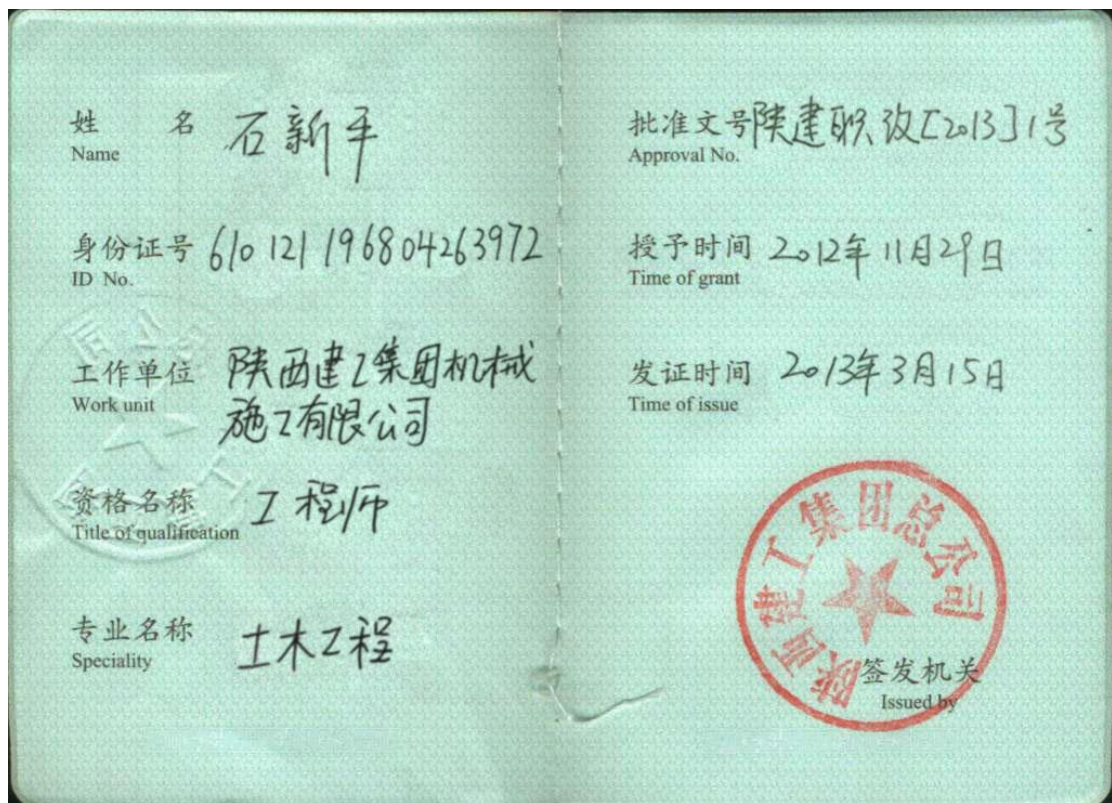 姓 名 石新平
Name
身份证号 610121196804263972
ID No.
工作单位 陕西建工集团机械
Work unit 施工有限公司
资格名称 工程师
Title of qualification
专业名称 土木工程
Speciality
批准文号 陕建职改[2013]1号
Approval No.
授予时间 2012年11月29日
Time of grant
发证时间 2013年3月15日
Time of issue
陕西建工集团总公司
签发机关
Issued by